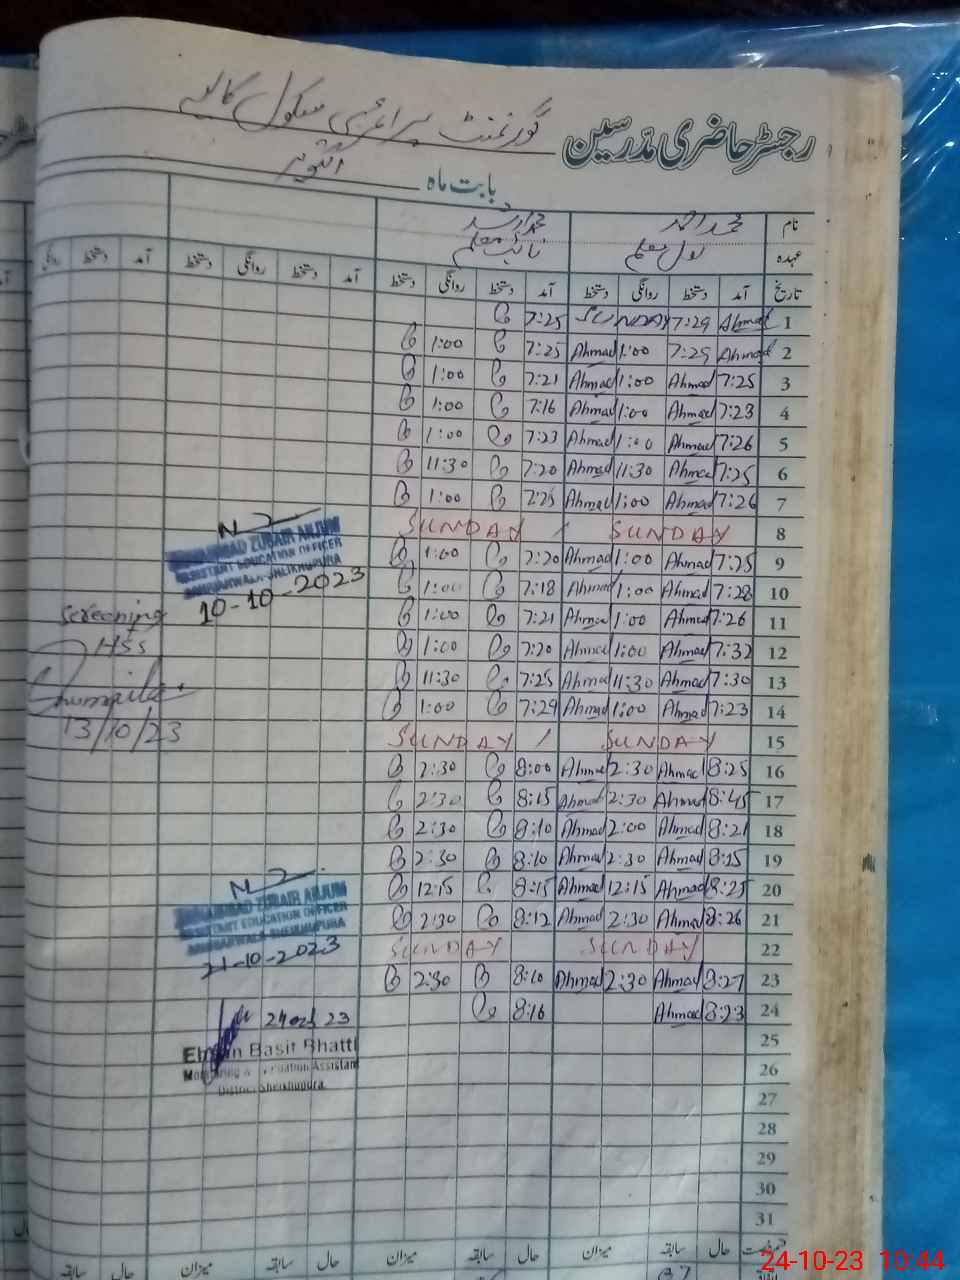 رجسٹر حاضری مدرسین گورنمنٹ پرائمری سکول
بابت ماہ اکتوبر
نام محمد احمد
عہدہ
تاریخ آمد دستخط روانگی دستخط آمد دستخط روانگی دستخط آمد دستخط روانگی دستخط آمد دستخط
1 Ahmad 7:29 SUNDAY 7:25
2 Ahmad 7:29 1:00 Ahmad 7:25 1:00
3 7:25 Ahmad 1:00 Ahmad 7:21 1:00
4 7:23 Ahmad 1:00 Ahmad 7:16 1:00
5 7:26 Ahmad 1:00 Ahmad 7:23 1:00
6 7:25 Ahmad 11:30 Ahmad 7:20 11:30
7 7:26 Ahmad 1:00 Ahmad 7:25 1:00
8 SUNDAY / SUNDAY
9 7:25 Ahmad 1:00 Ahmad 7:20 1:00
10 7:28 Ahmad 1:00 Ahmad 7:18 1:00
11 7:26 Ahmad 1:00 Ahmad 7:21 1:00
12 7:32 Ahmad 1:00 Ahmad 7:20 1:00
13 7:30 Ahmad 11:30 Ahmad 7:25 11:30
14 7:23 Ahmad 1:00 Ahmad 7:29 1:00
15 SUNDAY / SUNDAY
16 8:25 Ahmad 2:30 Ahmad 8:00 2:30
17 8:45 Ahmad 2:30 Ahmad 8:15 2:30
18 8:21 Ahmad 2:00 Ahmad 8:10 2:30
19 8:15 Ahmad 2:30 Ahmad 8:10 2:30
20 8:25 Ahmad 12:15 Ahmad 8:15 12:15
21 8:26 Ahmad 2:30 Ahmad 8:12 2:30
22 SUNDAY SUNDAY
23 8:27 Ahmad 2:30 Ahmad 8:10 2:30
24 8:23 Ahmad 8:16
25
26
27
28
29
30
31
حال سابقہ میزان حال سابقہ میزان حال سابقہ میزان حال سابقہ
MUHAMMAD ZUBAIR ANJUM
ASSISTANT EDUCATION OFFICER
SHEIKHUPURA
10-10-2023
Screening
HSS
13/10/23
MUHAMMAD ZUBAIR ANJUM
ASSISTANT EDUCATION OFFICER
SHEIKHUPURA
21-10-2023
Basit Bhatti
Assistant
District Sheikhupura.
24-10-23 10:44